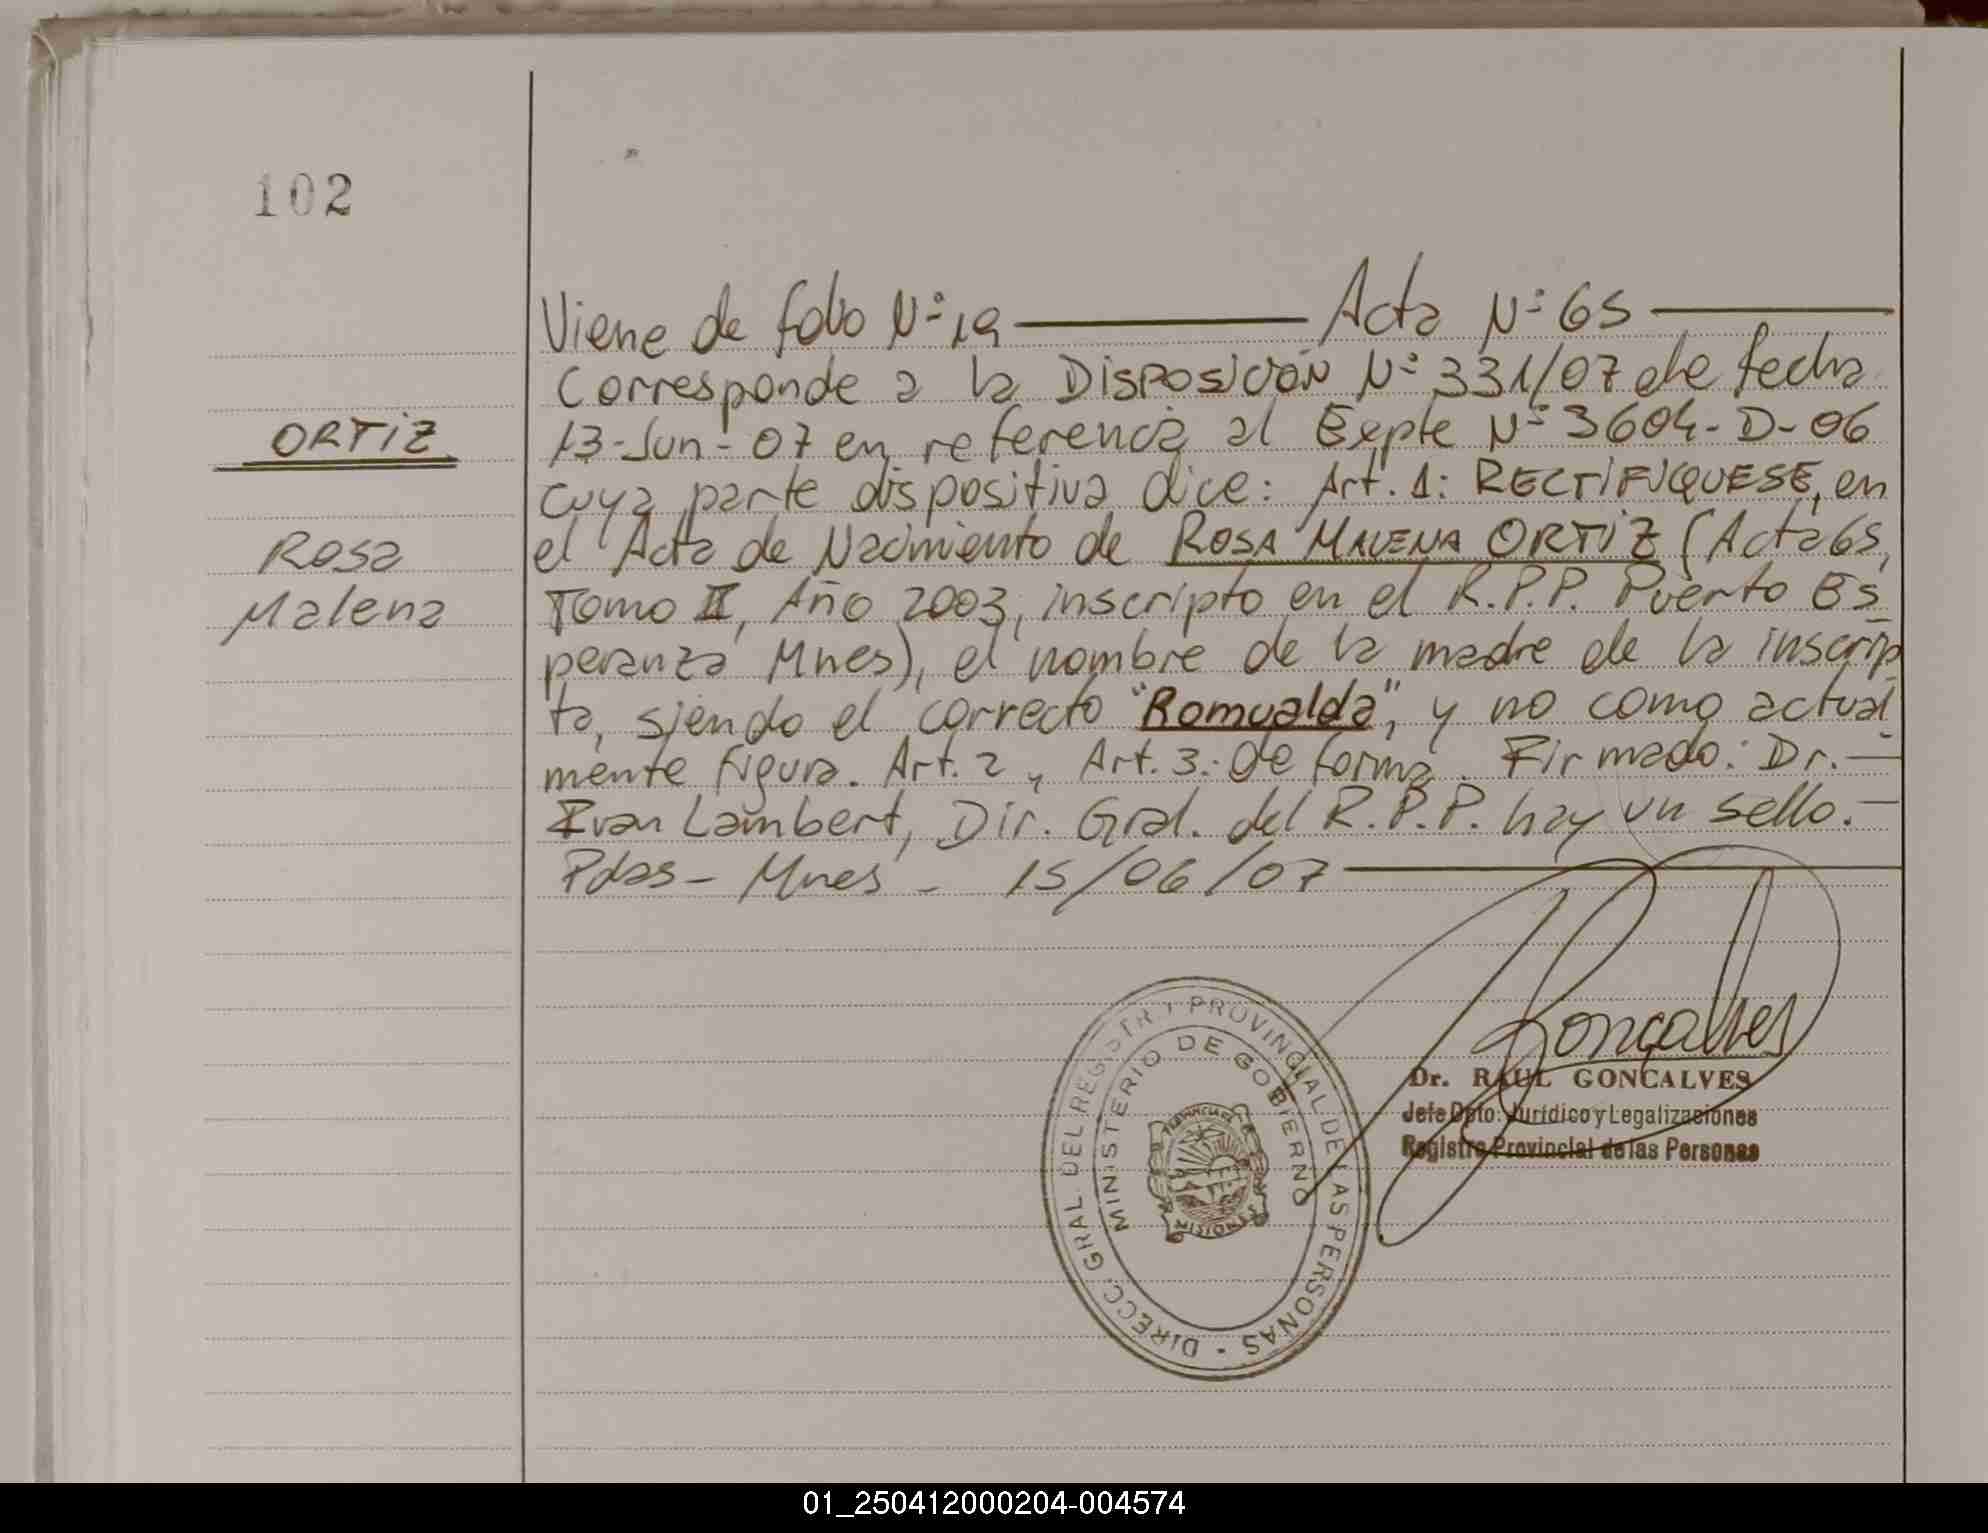 102
Viene de folio Nº 19 ——— Acta Nº 65 ———
Corresponde a la Disposición Nº 331/07 de fecha
ORTIZ
13-Jun-07 en referencia al Expte Nº 3604-D-06
cuya parte dispositiva dice: Art. 1: RECTIFIQUESE, en
Rosa
el Acta de Nacimiento de ROSA MALENA ORTIZ (Acta 65,
Malena
Tomo II, Año 2003, inscripto en el R.P.P. Puerto Es
peranza Mnes), el nombre de la madre de la inscrip
ta, siendo el correcto "Romualda", y no como actual
mente figura. Art. 2, Art. 3: de forma. Firmado: Dr. —
Ivan Lambert, Dir. Gral. del R.P.P. hay un sello. —
Pdas - Mnes - 15/06/07 ———
Goncalves
Dr. RAUL GONCALVES
Jefe Dpto. Jurídico y Legalizaciones
Registro Provincial de las Personas
DIRECC. GRAL. DEL REGISTRO PROVINCIAL DE LAS PERSONAS -
MINISTERIO DE GOBIERNO
PROVINCIA DE
MISIONES
01_250412000204-004574